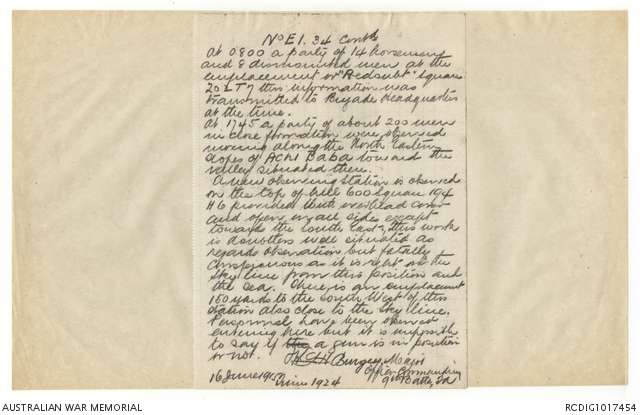 No E1. 34 Contd
At 0800 a party of 14 horsemen
and 8 dismounted men at the
emplacement or "Redoubt" Square
20 L T 7 this information was
transmitted to Brigade Headquarters
at the time.
At 1745 a party of about 200 men
in close formation were observed
moving along the North Eastern
slopes of ACHI BABA toward the
valley situated there.
A new observing station is observed
on the top of hill 600 Square 194
H 6 provided with overhead cover
and open on all sides except
towards the South East, this work
is doubtless well situated as
regards observation but fatally
conspicuous as it is right on the
sky line from this position and
the sea. There is an emplacement
150 yards to the South West of this
station also close to the sky line.
Personnel have been observed
entering here but it is impossible
to say if a gun is in position
or not.
Burgess Major
Officer Commanding
16 June 1915 9th Batty
1924
AUSTRALIAN WAR MEMORIAL
RCDIG1017454